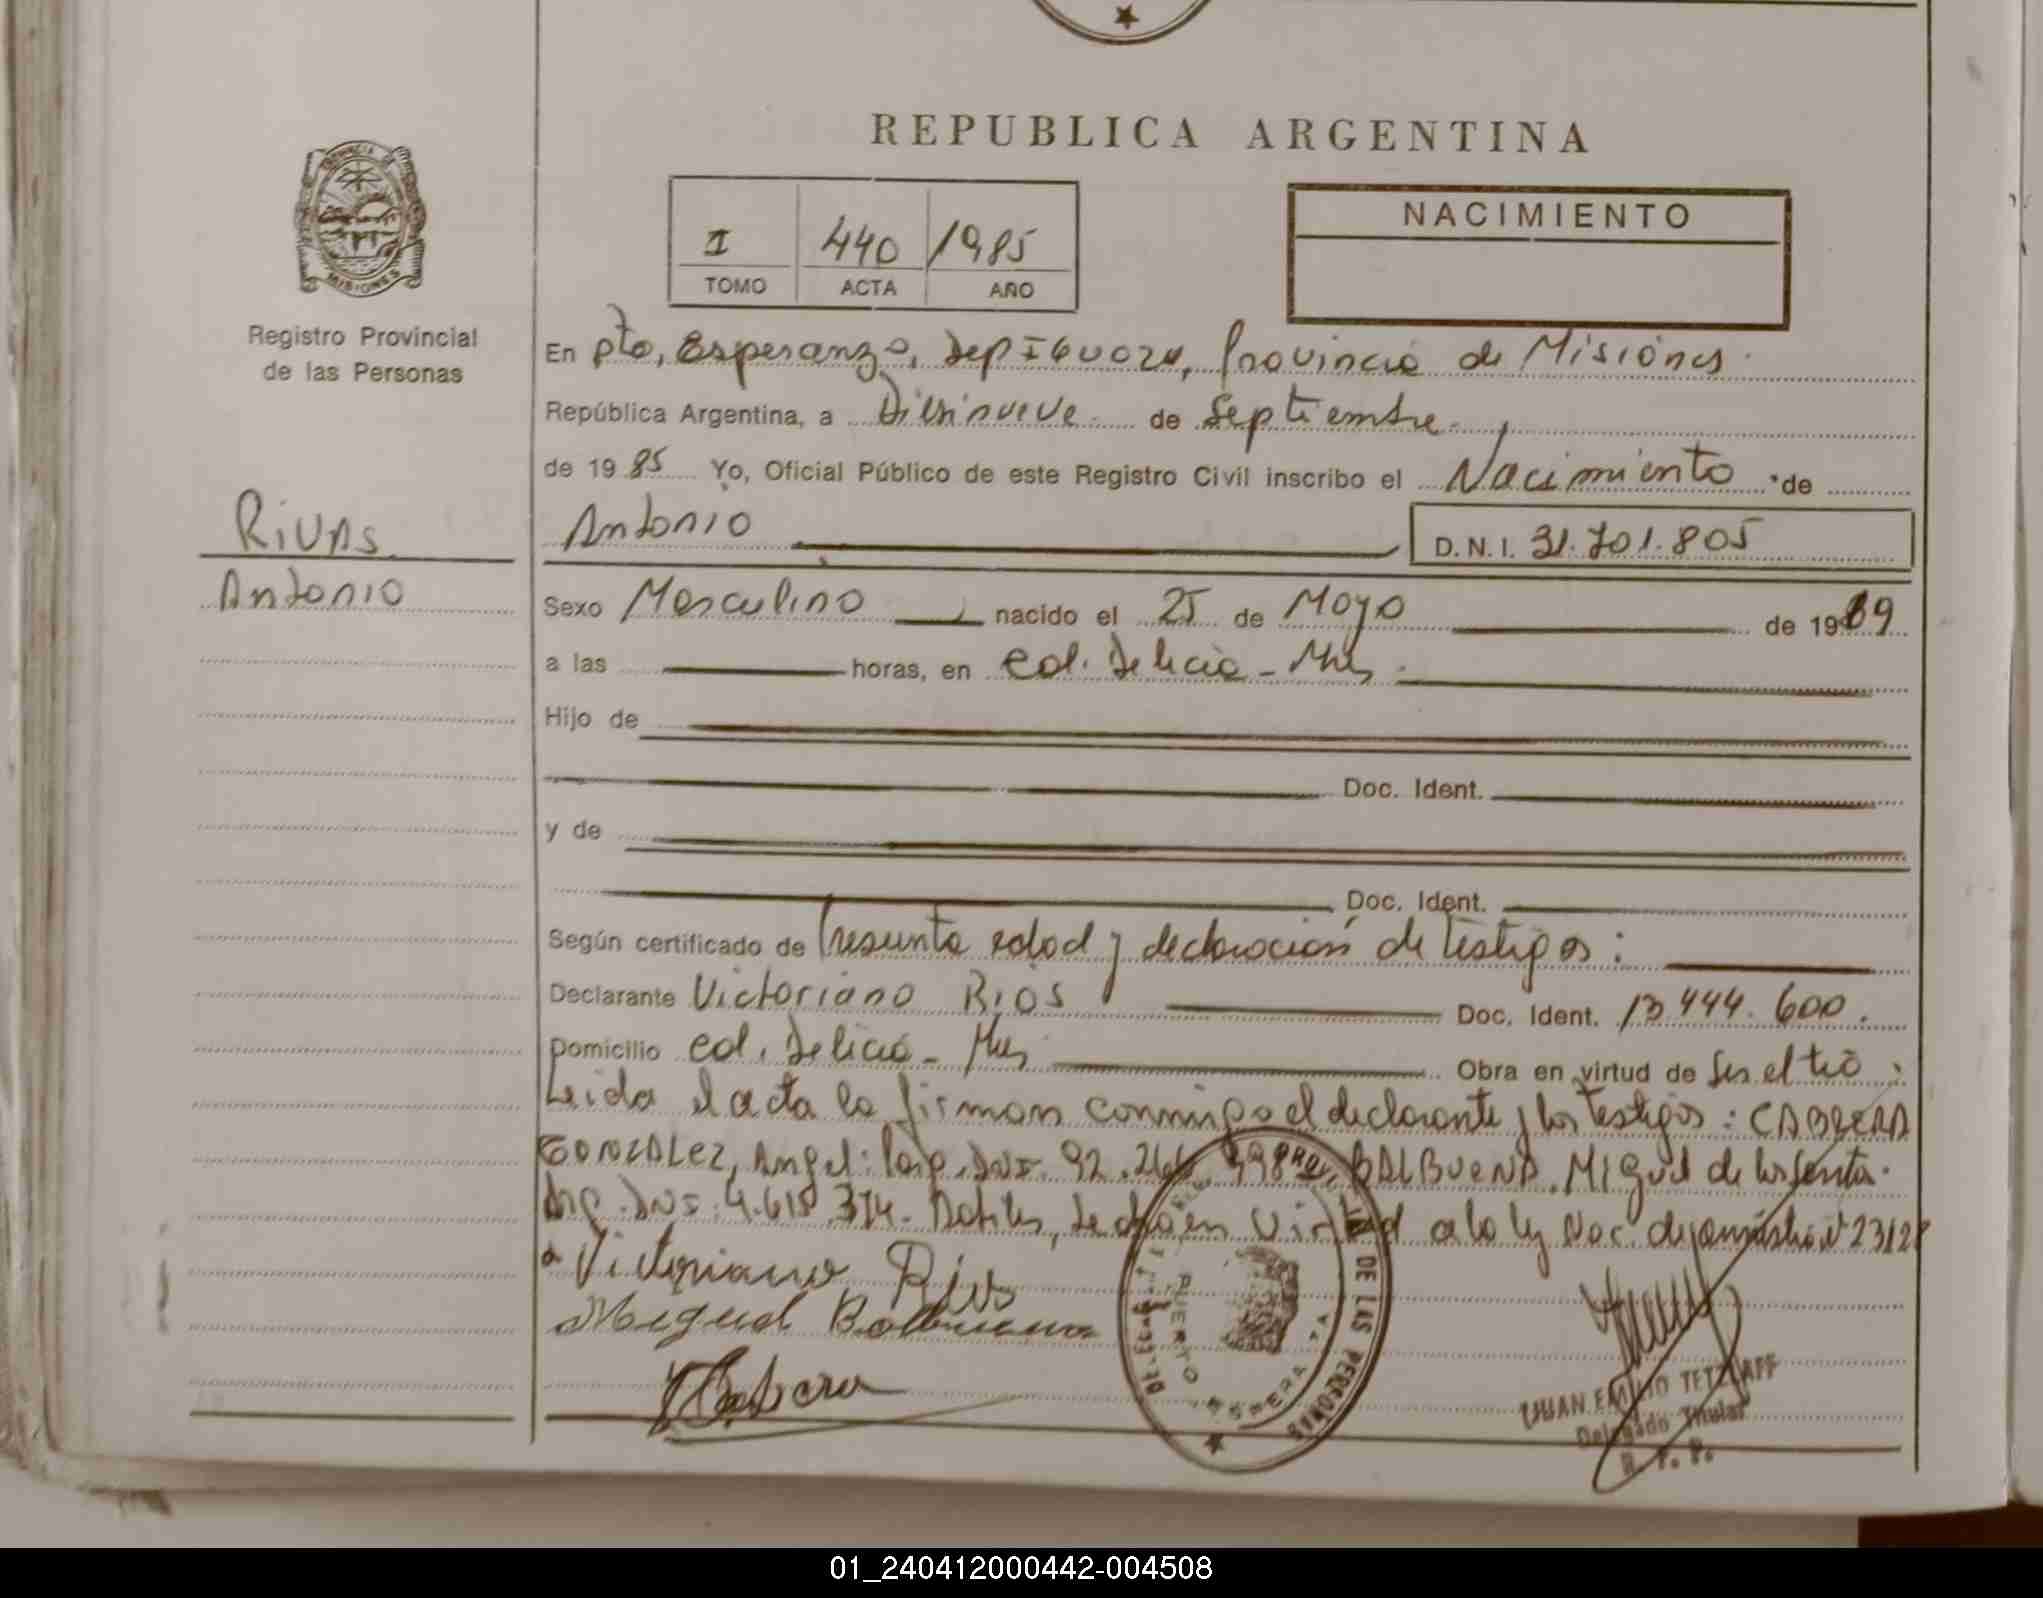 REPUBLICA ARGENTINA
PROVINCIA DE
MISIONES
Registro Provincial
de las Personas
I 440 1985
TOMO ACTA AÑO
NACIMIENTO
En Pto, Esperanza, Dep IGuazu, Provincia de Misiones.
República Argentina, a Diesinueve de Septiembre
de 1985 Yo, Oficial Público de este Registro Civil inscribo el Nacimiento de
Rivas
Antonio
Antonio D.N.I. 31.701.805
Sexo Masculino nacido el 25 de Mayo de 1969
a las horas, en Col. Delicia - Mnes
Hijo de
Doc. Ident.
y de
Doc. Ident.
Según certificado de Presunta edad y declaracion de testigos:
Declarante Victoriano Rios Doc. Ident. 13 444.600.
Domicilio Col. Delicia - Mnes Obra en virtud de ser el tio.
Leida el acta la firman conmigo el declarante y los testigos: CABRERA
GONZALEZ, Angel: Parg. DNI. 92.266 998 BALBUENA. Miguel de los Santos.
Arg. DNI: 4.615.374. Se en Virtud a la ley Nac. de amnistia nº 23128
Victoriano Rios
Miguel Balbuena
Cabrera
DE LAS PERSONAS
PUERTO ESPERANZA
JUAN EMILIO TETZLAFF
Delegado Titular
R. P. P.
01_240412000442-004508